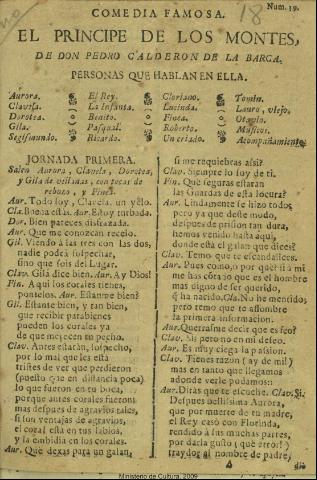 18
Num. 19.
COMEDIA FAMOSA.
EL PRINCIPE DE LOS MONTES,
DE DON PEDRO CALDERON DE LA BARCA.
PERSONAS QUE HABLAN EN ELLA.
Aurora. El Rey. Cloriano. Tomin.
Clavela. La Infanta. Lucinda. Lauro, viejo.
Dorotea. Benito. Flora. Otavio.
Gila. Pasqual. Roberto. Musicos.
Segismundo. Ricardo. Un criado. Acompañamiento
JORNADA PRIMERA.
Salen Aurora, Clavela, Dorotea,
y Gila de villanas, con tocas de
rebozo, y Finel.
Aur. Todo soy, Clavela, un yelo.
Cla. Buena estàs. Aur. Estoy turbada.
Dor. Bien pareces disfrazada.
Aur. Que me conozcan recelo.
Gil. Viendo à las tres con las dos,
nadie podrá sospechar,
sino que sois del Lugar.
Clav. Gila dice bien. Aur. Ay Dios!
Fin. A qui los corales tienes,
pontelos. Aur. Estànme bien?
Gil. Estanse bien, y tan bien,
que recibir parabienes
pueden los corales ya
de que merecen tu pecho.
Clav. Antes estaràn, sospecho,
por lo mal que les està
tristes de ver que perdieron
(puesto que en distancia poca)
lo que fueron en tu boca,
porque antes corales fueron
mas despues de agravios tales,
si son ventajas de agravios,
el coral està en tus labios,
y la embidia en los corales.
Aur. Que dexas para un galan,
si me requiebras assi?
Clav. Siempre lo soy de ti.
Fin. Què seguras estaràn
las Guardas de esta locura?
Aur. Lindamente se hizo todo;
pero ya que deste modo,
despues de prision tan dura,
hemos venido hasta aqui,
donde està el galan que dices?
Clav. Temo que te escandalices.
Aur. Pues como, ò por què? si à mi
me has contado que es el hombre
mas digno de ser querido,
q̃ ha nacido. Cla. No he mentido;
pero temo que te assombre
la primera informacion.
Aur. Querrasme decir que es feo?
Clav. Si; pero no en mi deseo.
Aur. Es muy ciega la passion.
Clav. Tienes razon (ay de mi!)
mas en tanto que llegamos
adonde verle podamos::
Aur. Diras que te escuche. Clav. Si.
Despues, bellissima Aurora,
que por muerte de tu madre,
el Rey casò con Florinda,
rendido à sus muchas partes,
por darla gusto (què error!)
traydor al nombre de padre,
A
dió
Ministerio de Cultura, 2009